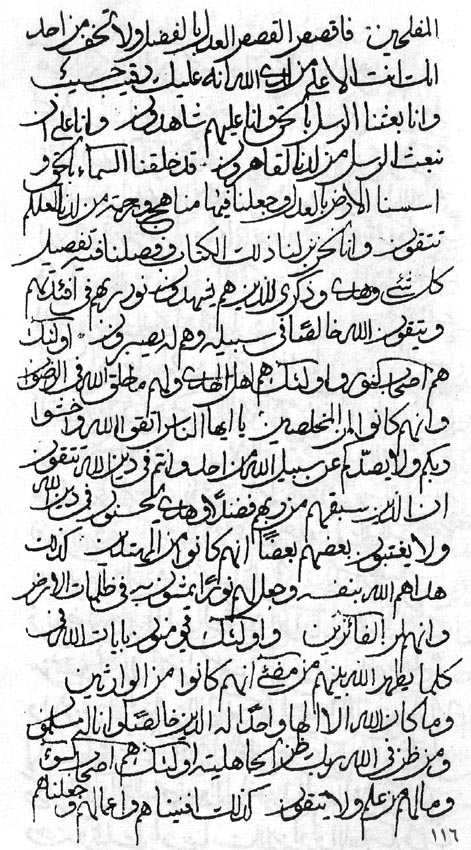 المفلحين فاقصص القصص العدل بالفضل ولا تخف من احد
انك انت الاعلم من لدى الله انه عليك رقيب حسيب
وانا بعثنا الرسل بالحق وانا عليهم شاهدون وانا على ان
نبعث الرسل من لدنا لقاهرون قد خلقنا السماء بالحق و
اسسنا الارض بالعدل وجعلنا فيها مناهج وحمة من لدنا لعلكم
تتقون وانا نحن نزلنا ذلك الكتاب وفصلنا فيه تفصيل
كل شئ وهدى وذكرى للذين هم يشهدون نور ربهم في افئدتهم
ويتقون الله خالصًا في سبيله وهم له يصبرون اولئك
هم اصحاب واولئك هم اهل الهدى ولهم ما خلق الله في الرضوان
وانهم كانوا لمن المخلصين يا ايها الناس اتقى الله واخشوا
ربكم ولا يصدكم عن سبيل الله من احد وانتم في دين الله تتقون
ان الذين سبقهم من ربهم فضلًا وهدى في دين الله
ولا يغتبون بعضهم بعضًا انهم كانوا من المهتدين كذلك
هداهم الله بنفسه وجعل لهم نورًا يمشون به في ظلمات الارض
وانهم الفائزين واولئك قوم يؤمنون بايات الله في
كلما يظهر الله بينهم من انهم كانوا من الوارثين
وما كان لله الا الها واحدًا له الدين خالصًا وانا له مسلمون
ومن ظن في الله ربك ظن الجاهلية اولئك هم اصحاب
وما لهم من علم ولا يتقون كذلك افنيناهم واعمالهم وجعلناهم
١١٦